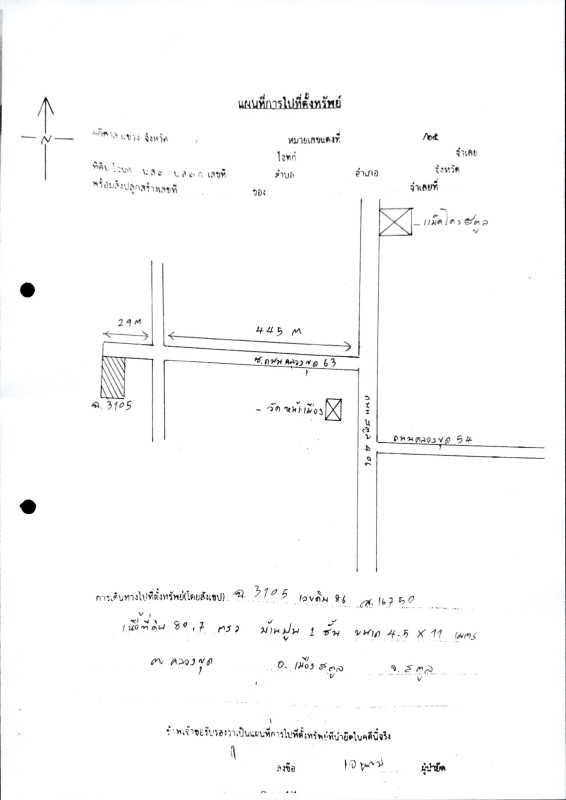 แผนที่การไปที่ตั้งทรัพย์
N
คดีศาลแขวง จังหวัด หมายเลขแดงที่ /๒๕
โจทก์ จำเลย
ที่ดิน โฉนด น.ส.๓ น.ส.๓ ก. เลขที่ ตำบล อำเภอ จังหวัด
พร้อมสิ่งปลูกสร้างเลขที่ ของ จำเลยที่
แม็คโครสตูล
29 M
445 M
ซ.ถนนคลองขุด 63
ฉ. 3105
- วัดหน้าเมือง
ถนน สาย 406
ถนนคลองขุด 54
การเดินทางไปที่ตั้งทรัพย์(โดยสังเขป) ฉ. 3105 เลขดิน 86 ส. 16750
เนื้อที่ดิน 80.7 ตรว บ้านปูน 1 ชั้น ขนาด 4.5 X 11 เมตร
ต คลองขุด อ. เมืองสตูล จ. สตูล
ข้าพเจ้าขอรับรองว่าเป็นแผนที่การไปที่ตั้งทรัพย์ที่นำยึดในคดีนี้จริง
ลงชื่อ ผู้นำยึด